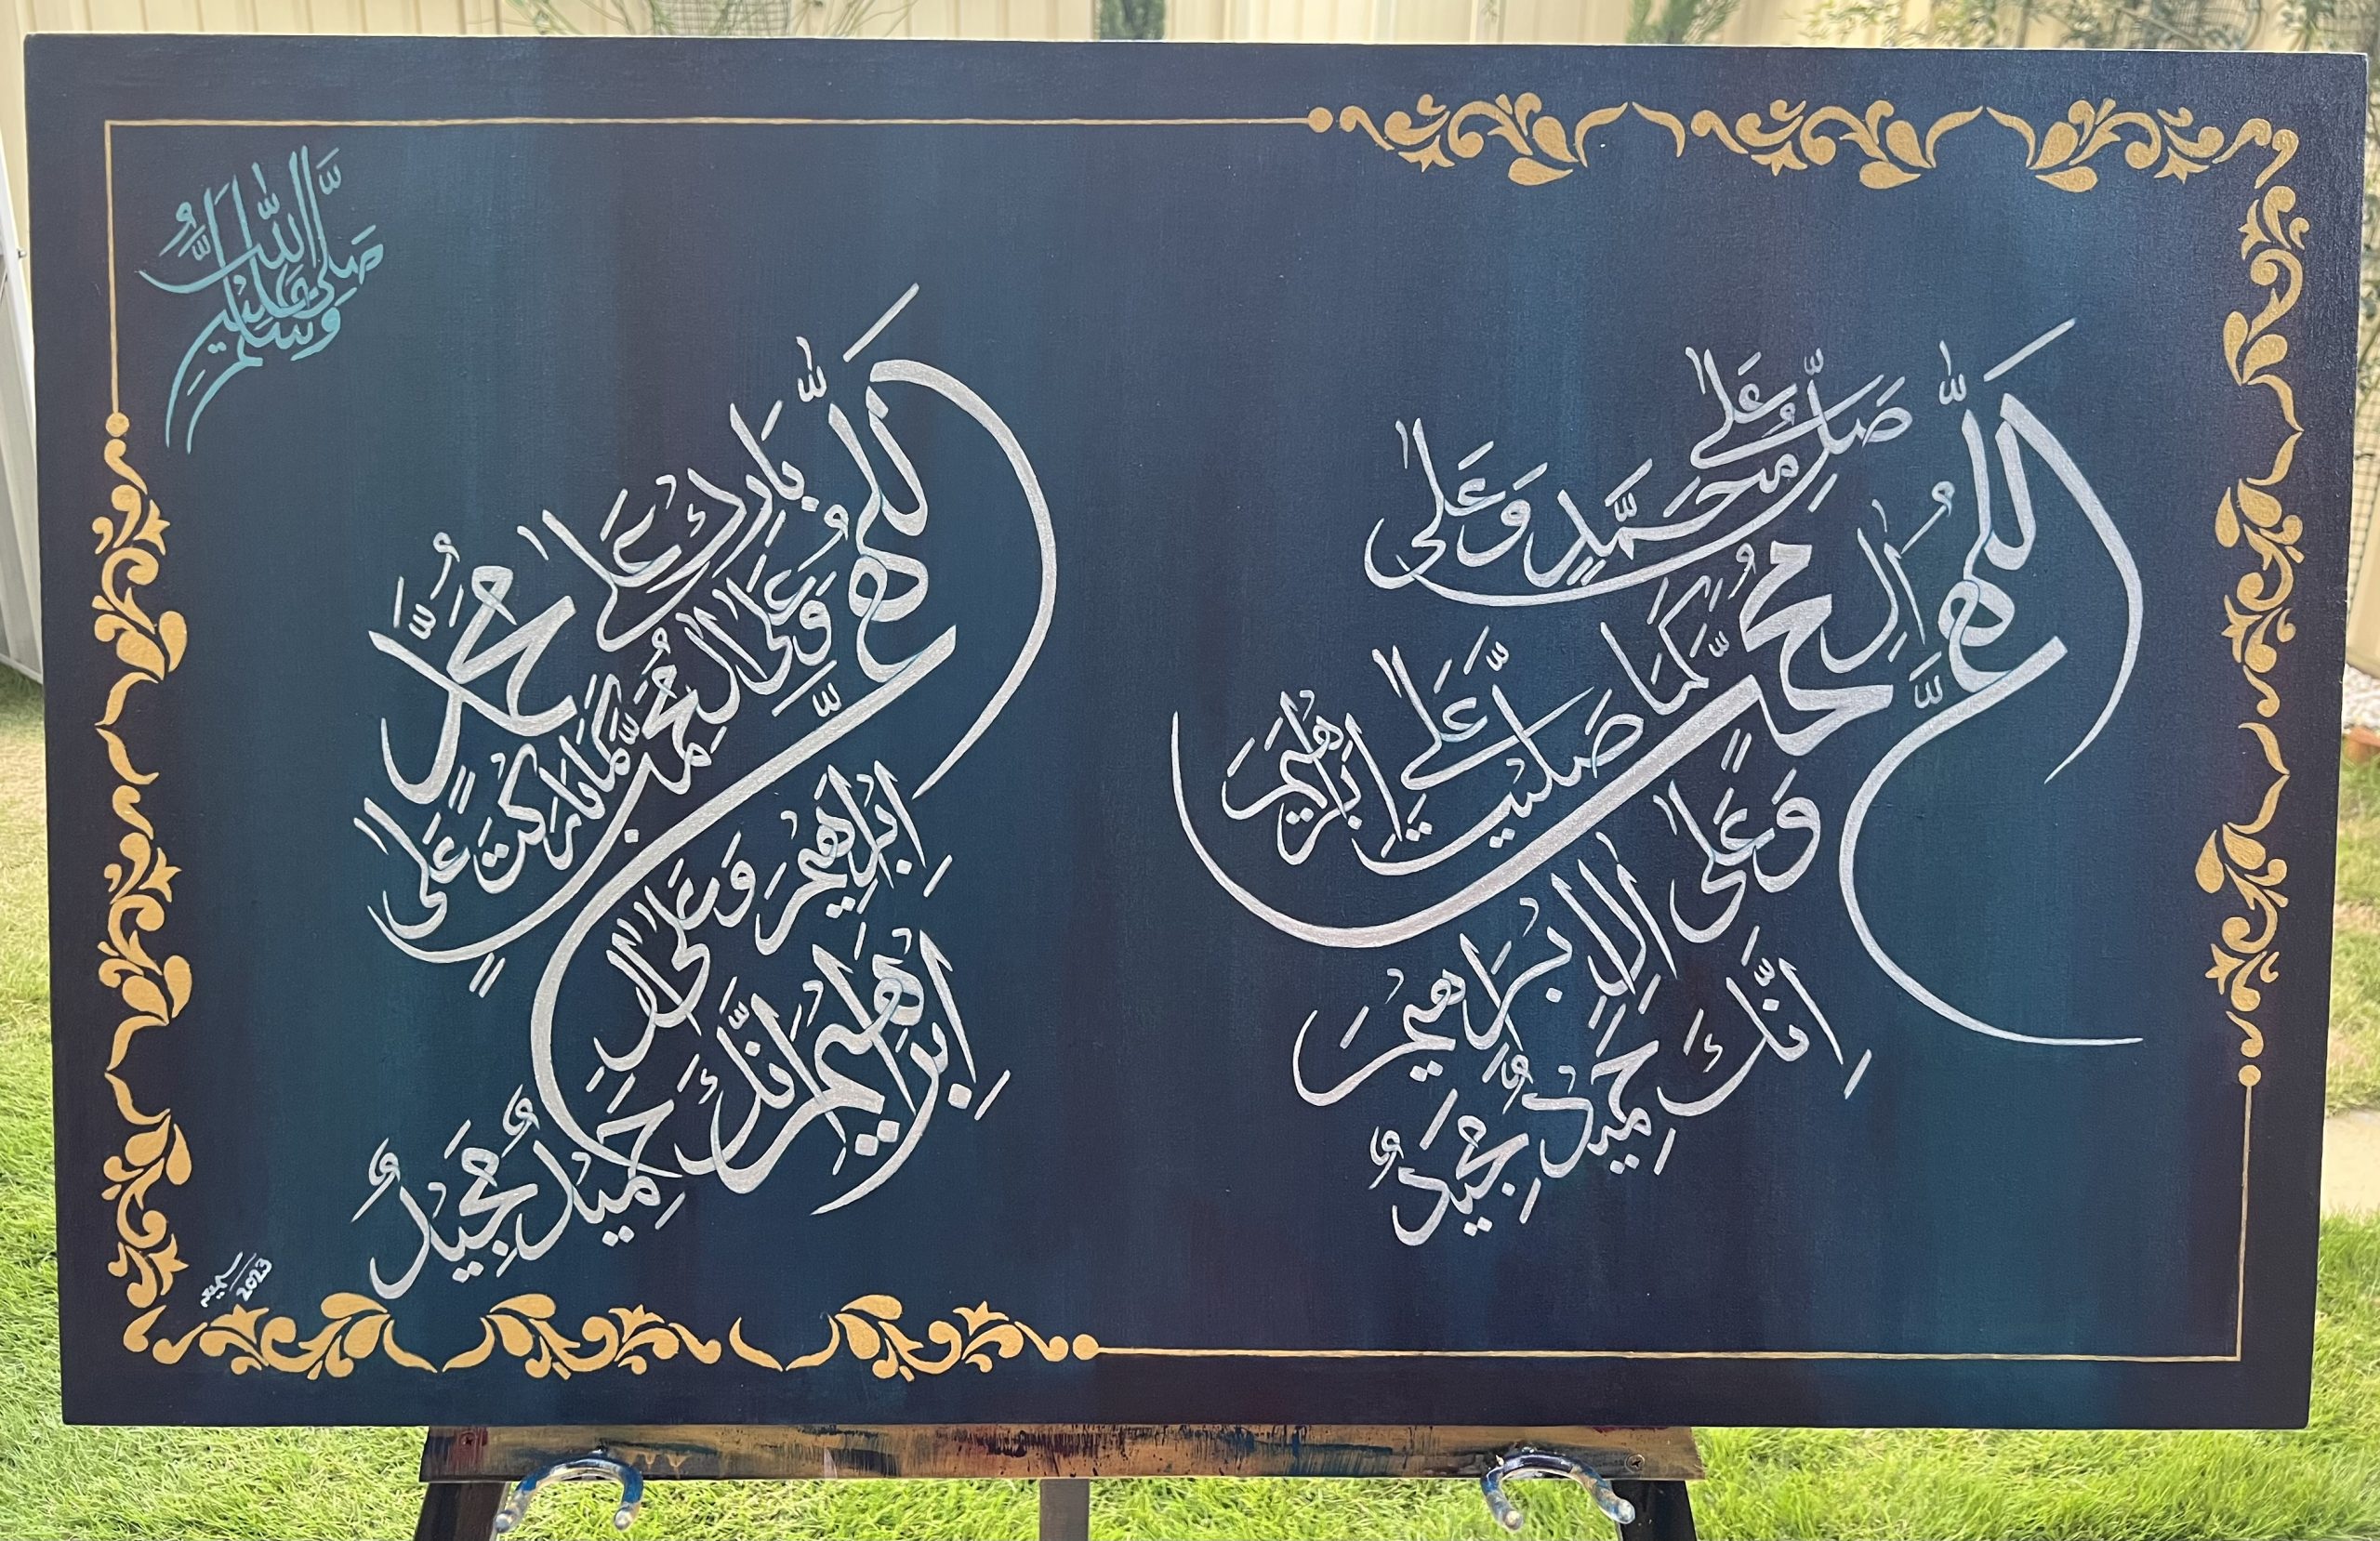 اللهم صَلِّ عَلَى مُحَمَّدٍ وَعَلَى
اٰلِ مُحَمَّدٍ كَمَا صَلَّيْتَ عَلَى اِبْرَاهِيْمَ
وَعَلَى اٰلِ اِبْرَاهِيْمَ
اِنَّكَ حَمِيْدٌ مَجِيْدٌ
اللهم بَارِكْ عَلَى مُحَمَّدٍ
وَعَلَى اٰلِ مُحَمَّدٍ كَمَا بَارَكْتَ عَلَى
اِبْرَاهِيْمَ وَعَلَى اٰلِ
اِبْرَاهِيْمَ اِنَّكَ حَمِيْدٌ مَجِيْدٌ
صَلَّى اللّٰهُ عَلَيْهِ وَسَلَّمَ
2023